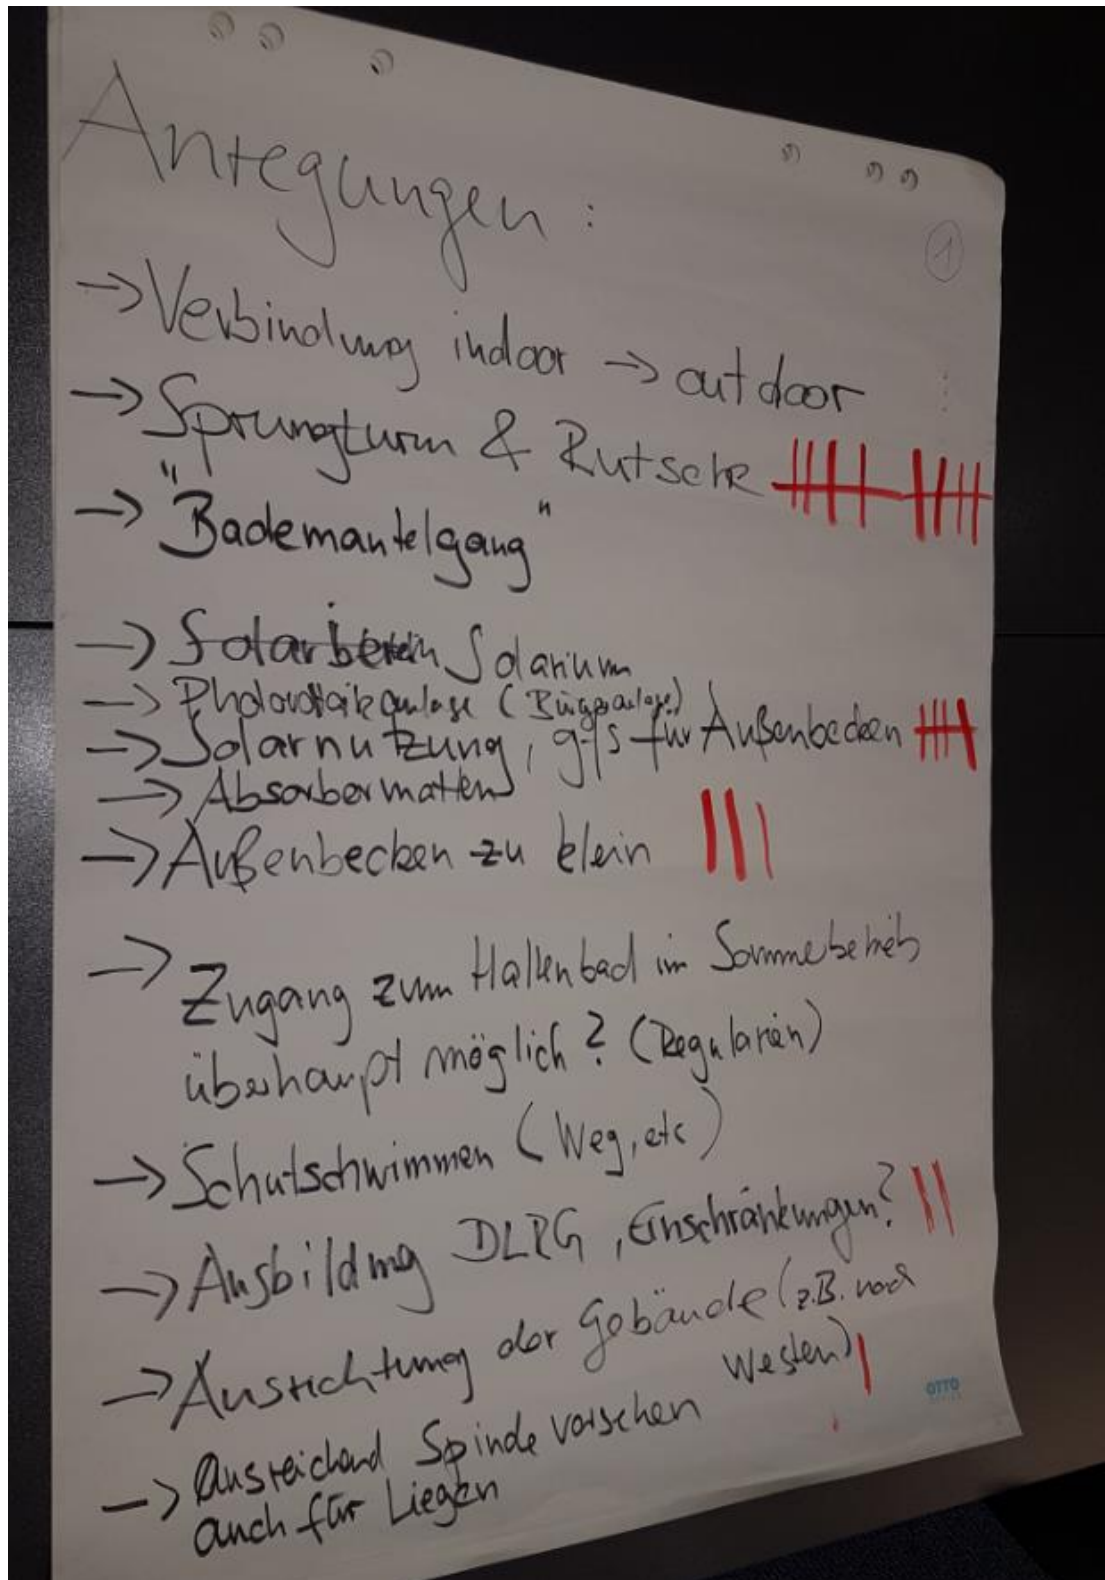 Anregungen:
1
→ Verbindung indoor → outdoor
→ Sprungturm & Rutsche
→ "Bademantelgang"
→ Solarium
→ Photovoltaikanlage (Bürgeranlage)
→ Solarnutzung, ggfs für Außenbecken
→ Absorbermatten
→ Außenbecken zu klein
→ Zugang zum Hallenbad im Sommerbetrieb
überhaupt möglich? (Regularien)
→ Schulschwimmen (Weg, etc)
→ Ausbildung DLRG, Einschränkungen?
→ Ausrichtung der Gebäude (z.B. nach
Westen)
OTTO
→ Ausreichend Spinde vorsehen
auch für Liegen